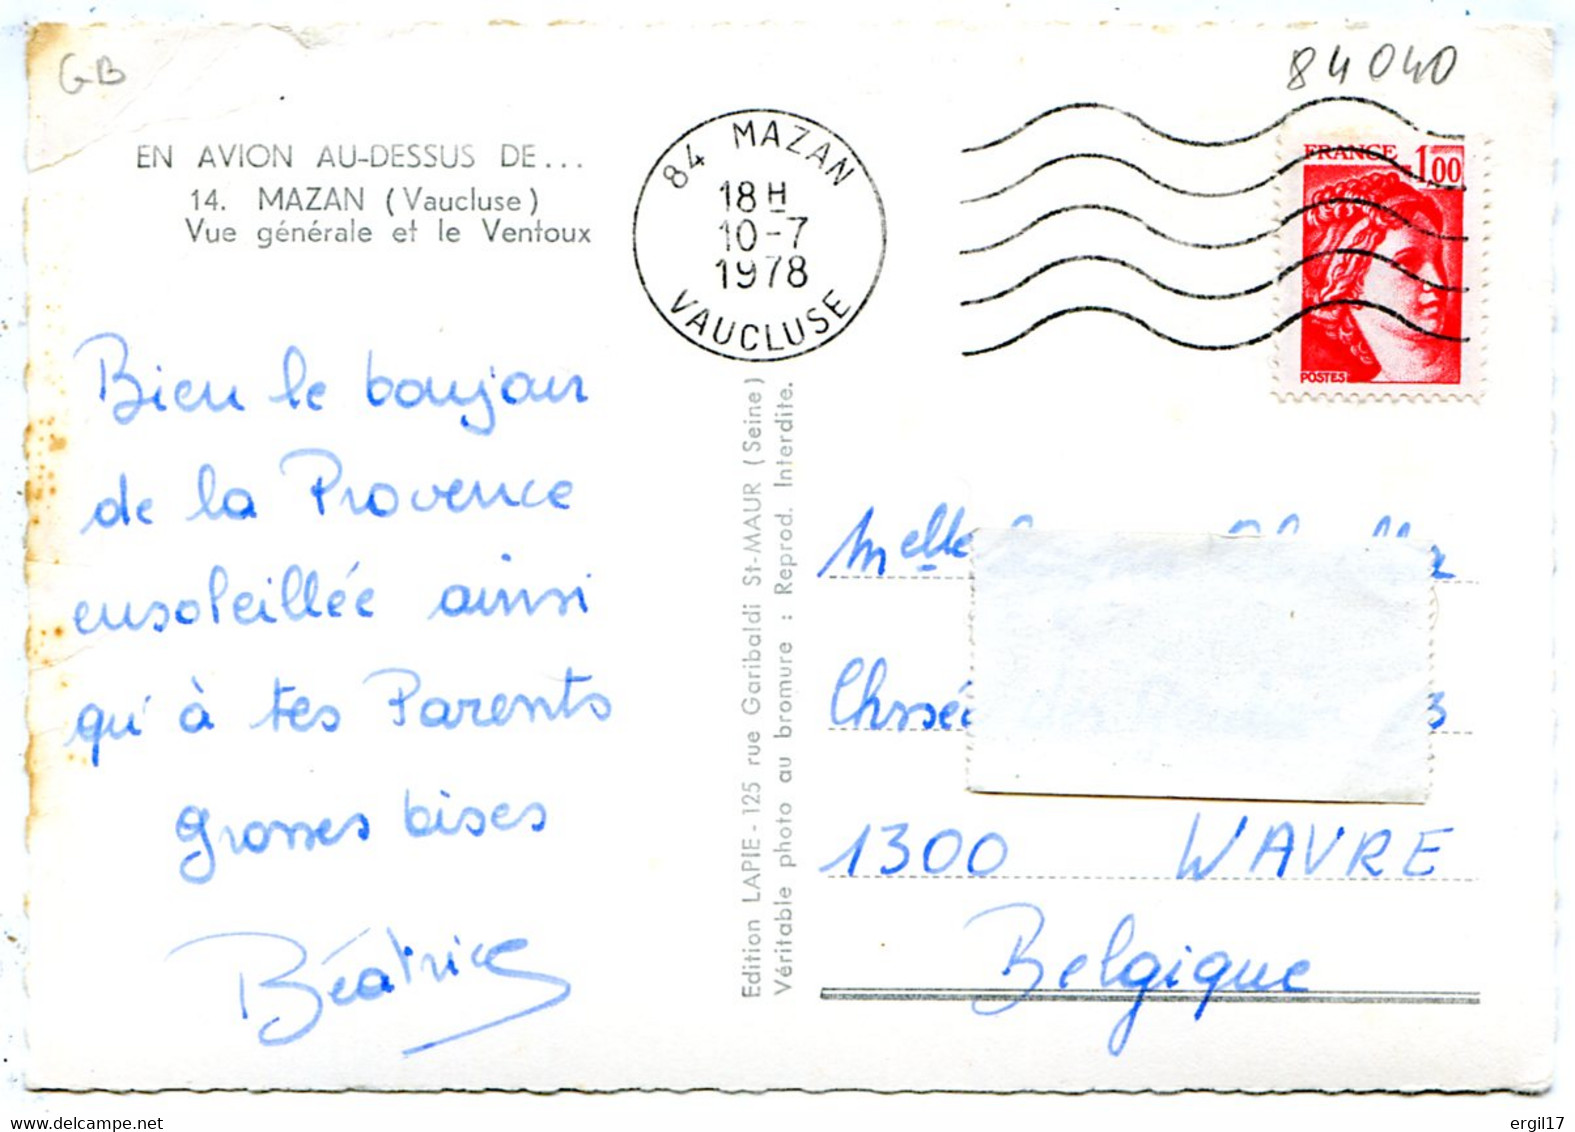 GB
84040
EN AVION AU-DESSUS DE...
14. MAZAN (Vaucluse)
Vue générale et le Ventoux
84 MAZAN
18 H
10-7
1978
VAUCLUSE
FRANCE 1,00
POSTES
Bien le bonjour
de la Provence
ensoleillée ainsi
qu'à tes Parents
grosses bises
Béatrice
Edition LAPIE - 125 rue Garibaldi St-MAUR (Seine)
Véritable photo au bromure : Reprod. Interdite.
Melle
Chssée
1300 WAVRE
Belgique
www.delcampe.net
ergil17